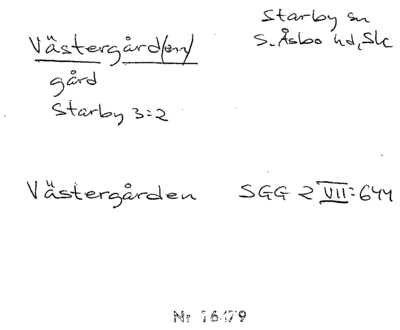 Västergård(en)
Starby sn
S. Åsbo hd, Sk
gård
Starby 3:2
Västergården SGG 2 VII:644
Nr